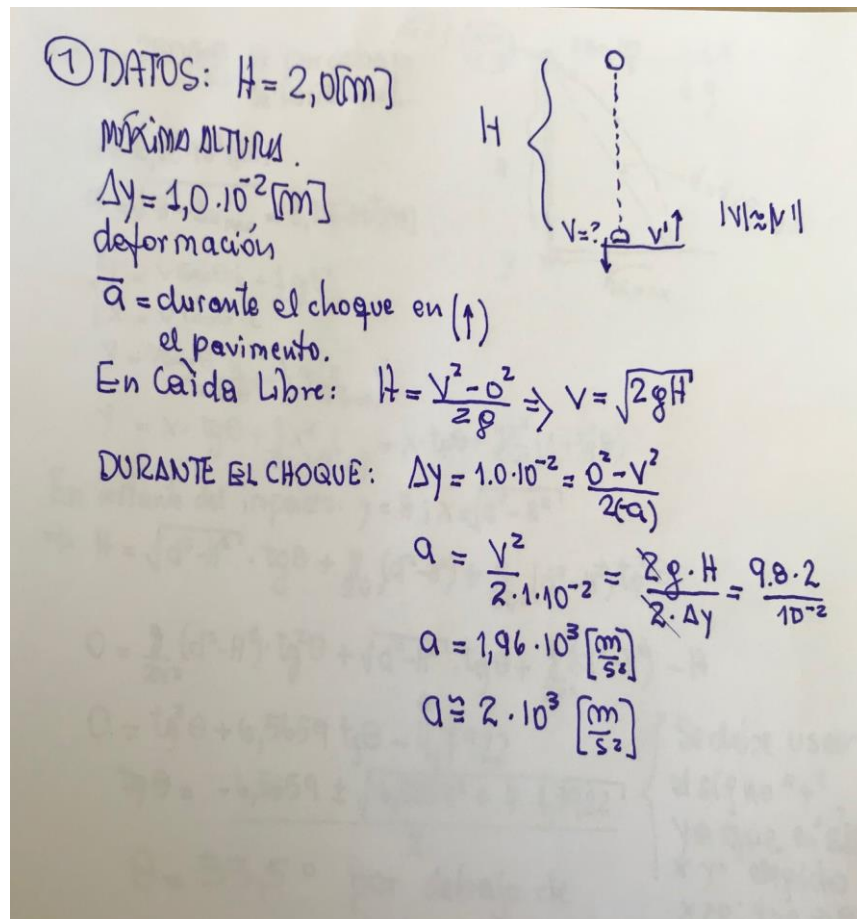 ① DATOS: H = 2,0[m]
MÁXIMA ALTURA.
Δy = 1,0·10⁻² [m]
deformación
a̅ = durante el choque en (↑)
el pavimento.
H
V=? V'↑ |V|≈|V'|
En Caìda Libre: H = (V² - 0²)/(2g) => V = √(2gH)
DURANTE EL CHOQUE: Δy = 1.0·10⁻² = (0² - V²)/(2(-a))
a = V²/(2·1·10⁻²) = (2g·H)/(2·Δy) = (9.8·2)/(10⁻²)
a = 1,96·10³ [m/s²]
a ≅ 2·10³ [m/s²]